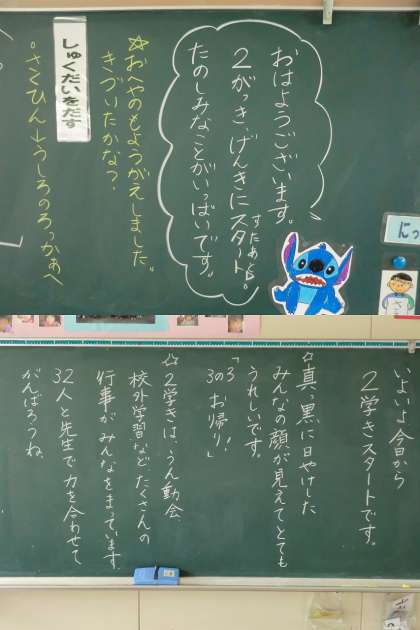 おはようございます。
2がっき、げんきにスタート。
すたあと
たのしみなことがいっぱいです。
☆おへやのもようがえしました。
きづいたかな?
しゅくだいをだす
。さくひん→うしろのろっかあへ
にっ
いよいよ今日から
2学きスタートです。
☆真っ黒に日やけした
みんなの顔が見えてとても
うれしいです。
「3の3 お帰り!」
☆2学きは、うん動会
校外学習など、たくさんの
行事がみんなをまっています。
32人と先生で力を合わせて
がんばろうね。